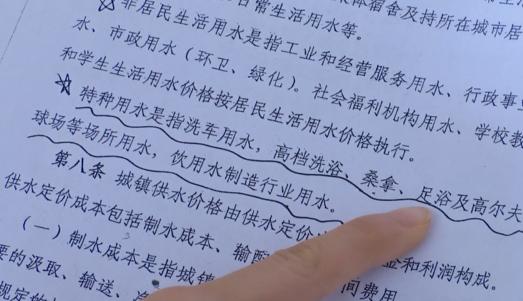 常生活用水等。
宿舍及持所在城市居
非居民生活用水是指工业和经营服务用水、行政事业
水、市政用水（环卫、绿化）。社会福利机构用水、学校教
和学生生活用水价格按居民生活用水价格执行。
特种用水是指洗车用水，高档洗浴、桑拿、足浴及高尔夫
球场等场所用水，饮用水制造行业用水。
第八条 城镇供水价格由供水定价 金和利润构成。
供水定价成本包括制水成本、输
（一）制水成本是指城镇 间费用
要的汲取、输送、净
规定的